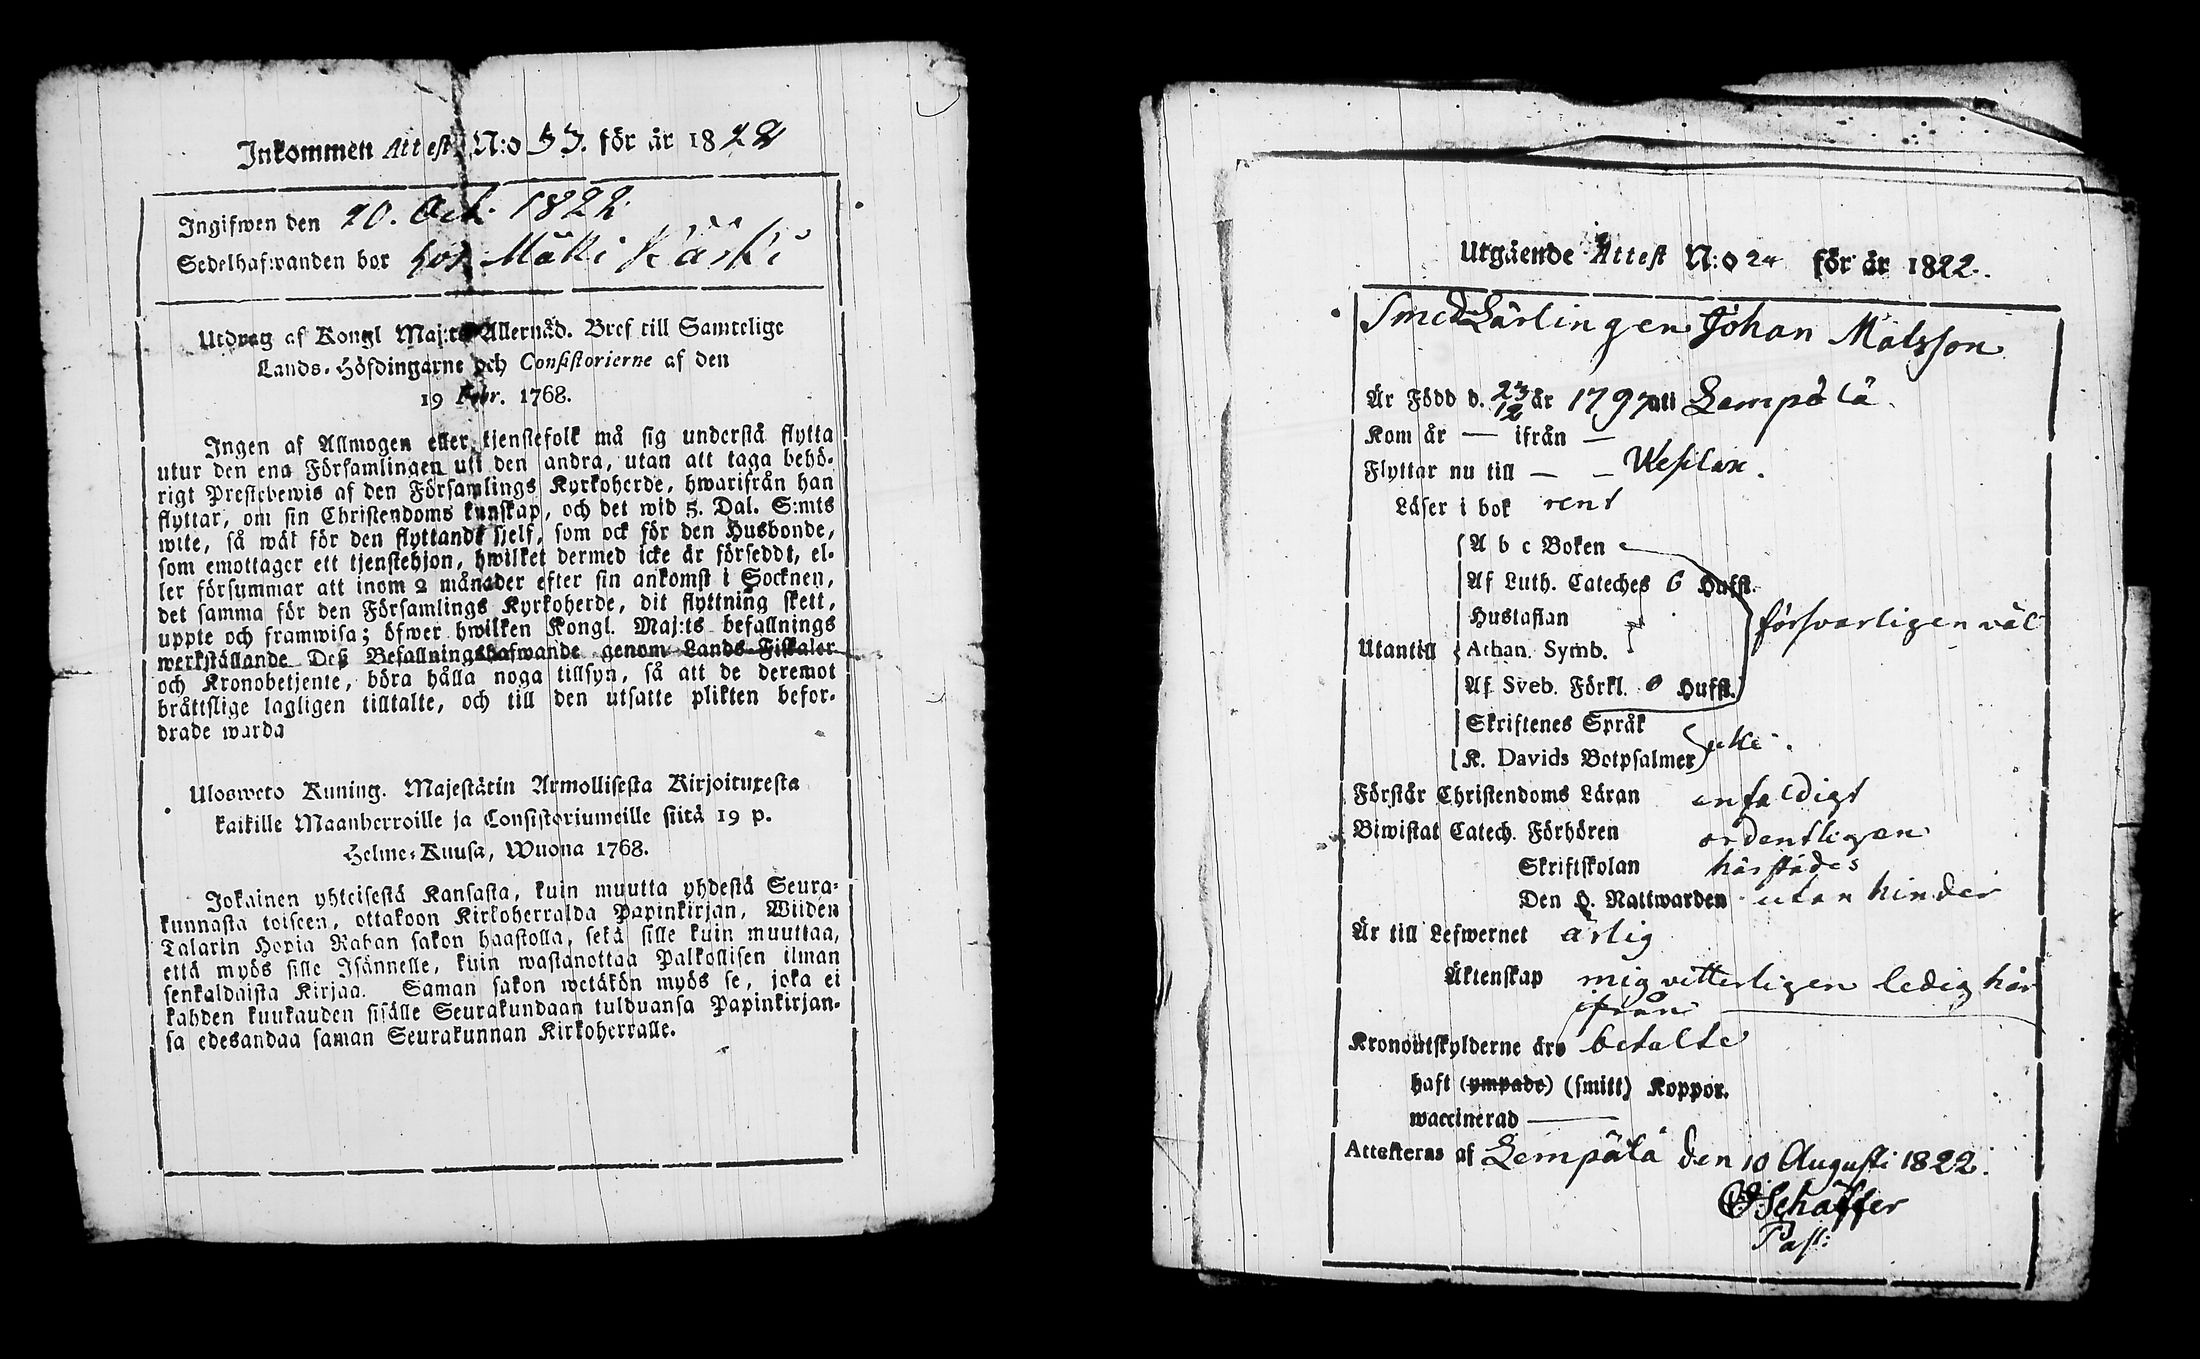 Inkommen Attest N:o 33. för år 1822
Ingifwen den 20. Oct. 1822
Sedelhafwanden bor hos Mäki Käski
Utdrag af Kongl Maj:ts Allernåd. Bref till Samtelige
Lands-Höfdingarne och Consistorierne af den
19 Febr. 1768.
Ingen af Allmogen eller tjenstefolk må sig understå flytta
utur den ena Församlingen uti den andra, utan att taga behö-
rigt Prestebewis af den Församlings Kyrkoherde, hwarifrån han
flyttar, om sin Christendoms kunskap, och det wid 5. Dal. S:mts
wite, så wäl för den flyttande sjelf, som ock för den Husbonde,
som emottager ett tjenstehjon, hwilket dermed icke är förseddt, el-
ler försummar att inom 2 månader efter sin ankomst i Socknen,
det samma för den Församlings Kyrkoherde, dit flyttning skett,
uppte och framwisa; öfwer hwilken Kongl. Maj:ts befallnings
werkställande Deß Befallningshafwande genom Lands-Fiskaler
och Kronobetjente, böra hålla noga tillsyn, så att de deremot
bråttslige lagligen tilltalte, och till den utsatte plikten befor-
drade warda
Ulosweto Kuning. Majestätin Armollisesta Kirjoituxesta
kaikille Maanherroille ja Consistoriumeille siitä 19 p.
Helme-Kuusa, Wuona 1768.
Jokainen yhteisestä Kansasta, kuin muutta yhdestä Seura-
kunnasta toiseen, ottakoon Kirkoherralda Papinkirjan, Wiiden
Talarin Hopia Rahan sakon haastolla, sekä sille kuin muuttaa,
että myös sille Isännelle, kuin wastanottaa Palkollisen ilman
senkaldaista Kirjaa. Saman sakon wetäkön myös se, joka ei
kahden kuukauden sisälle Seurakundaan tulduansa Papinkirjan-
sa edesandaa saman Seurakunnan Kirkoherralle.
Utgående Attest N:o 24 för år 1822.
Smed Lärlingen Johan Matsson
Är Född d. 23/12 år 1797 uti Lempälä
Kom år — ifrån —
Flyttar nu till — —
Läser i bok rent
A b c Boken
Af Luth. Cateches 6 Hufst.
Hustaflan
Utantill Athan. Symb.
försvarligen väl
Af Sveb. Förkl. 0 Hufst.
Skriftenes Språk
K. Davids Botpsalmer icke.
Förstår Christendoms Läran enfaldigt
Biwistat Catech. Förhören ordentligen
Skriftskolan härstädes
Den H. Nattwarden utan hinder
Är till Lefwernet ärlig
Äktenskap mig vitterligen ledig här
ifrån
Kronoutskylderne äro betalte
haft (ympade) (smitt) Koppor.
waccinerad —
Attesteras af Lempälä den 10 Augusti 1822.
Schäffer
Past: